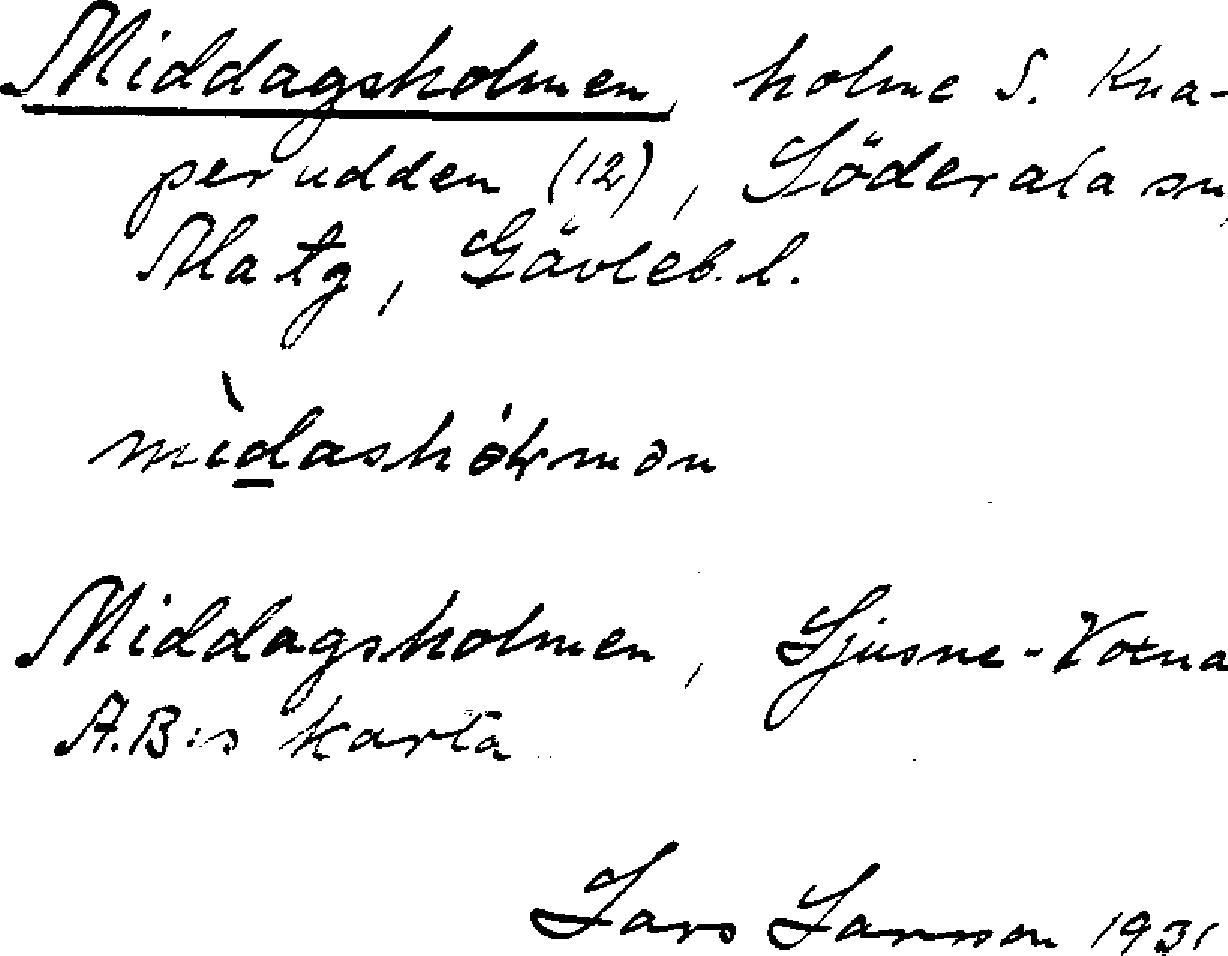 Middagsholmen, holme S. Kna-
perudden (12), Söderala sn,
Ala tg, Gävleb. l.
Middagsholmen, Ljusne-Voxna
A.B:s karta
Lars Larsson 1931